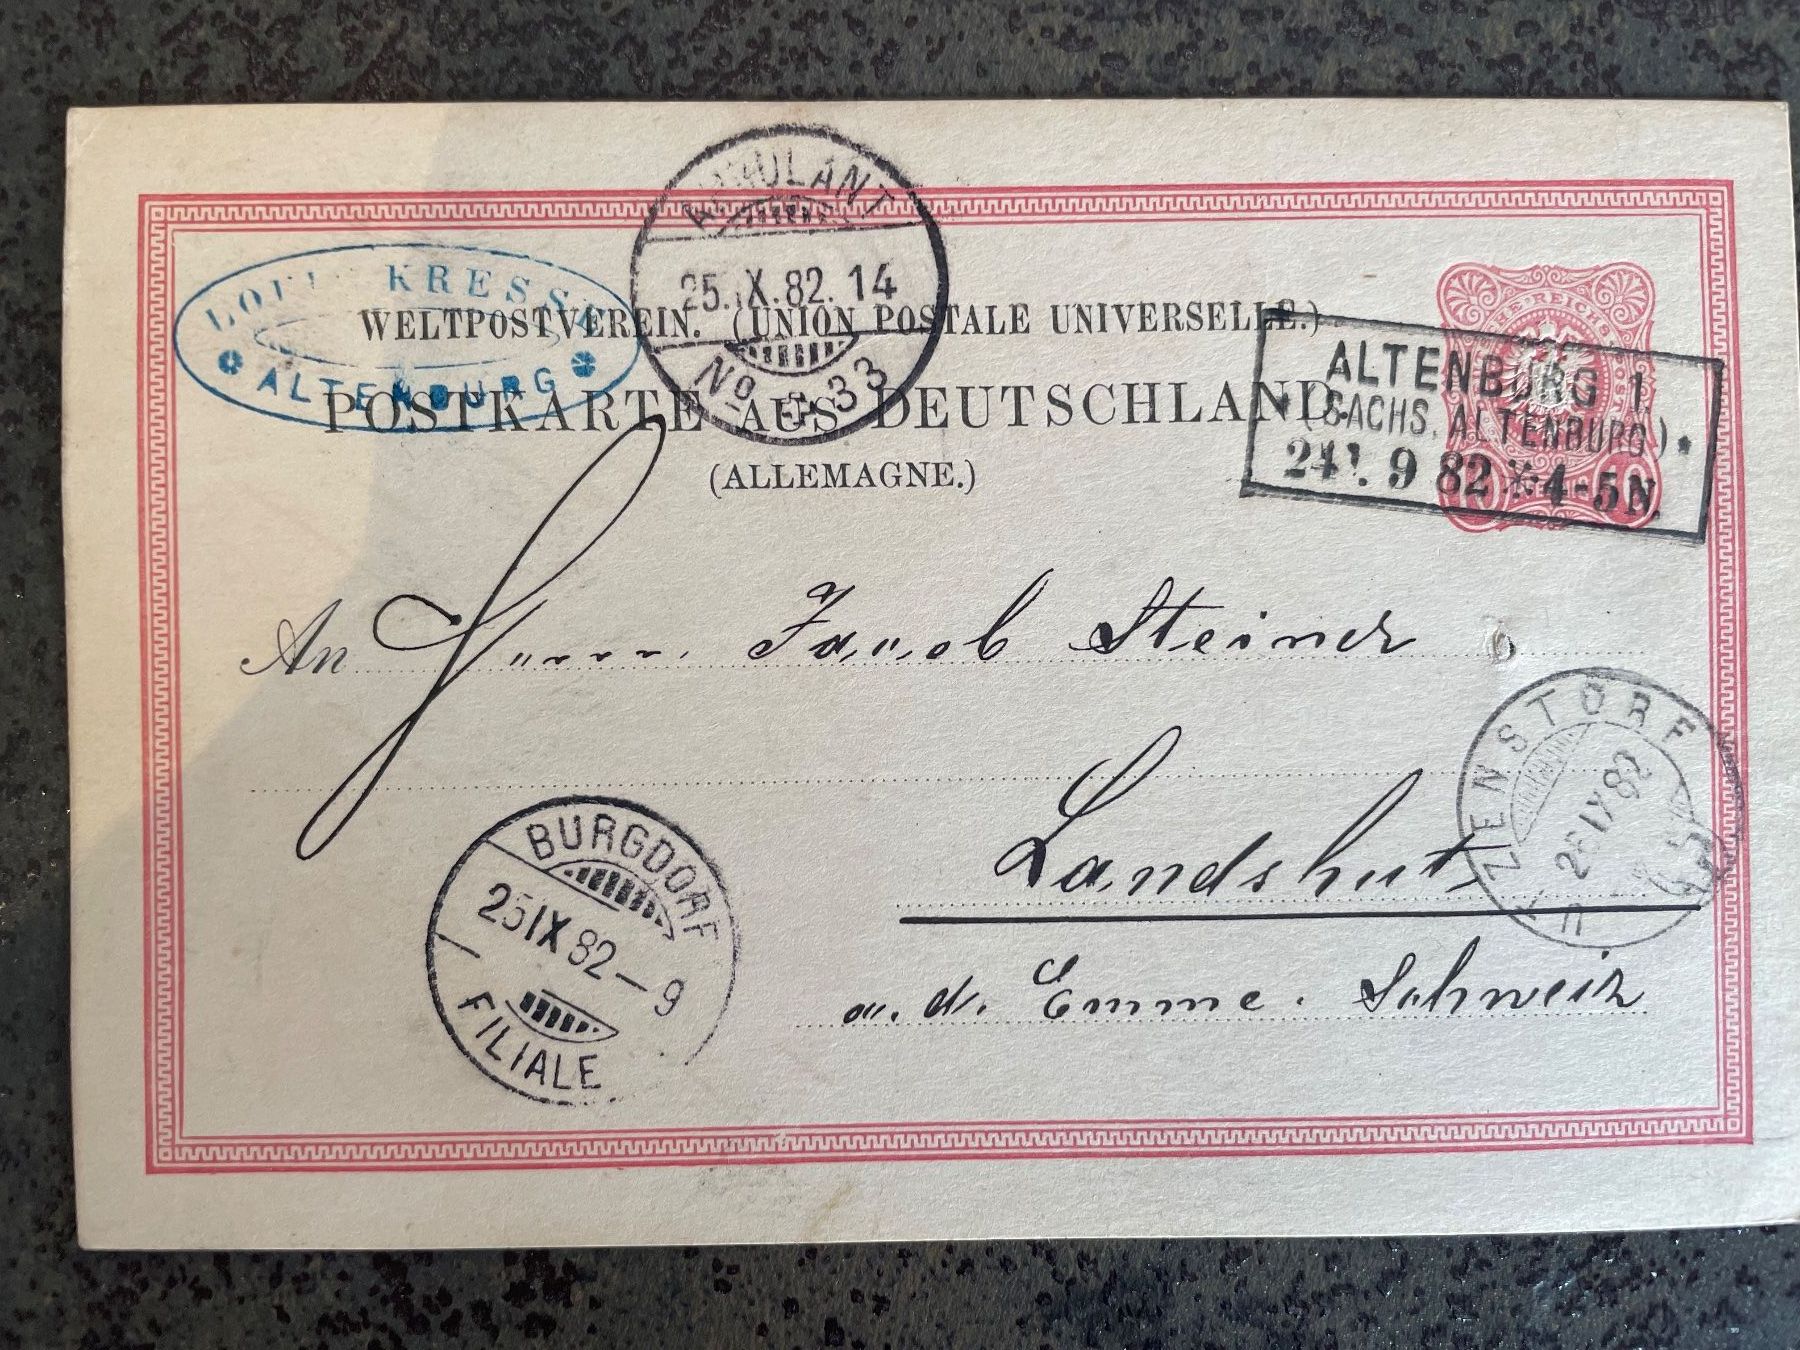 AMBULANT
25.IX.82.14
No 5.33
KRESSE
ALTENBURG
WELTPOSTVEREIN. (UNION POSTALE UNIVERSELLE.)
POSTKARTE AUS DEUTSCHLAND.
(ALLEMAGNE.)
ALTENBURG 1.
(SACHS. ALTENBURG).
24. 9 82 * 4-5N.
An Herrn Jacob Steiner
UTZENSTORF
26 IX 82
Landshut
a. d. Emme. Schweiz
BURGDORF
25 IX 82-9
FILIALE